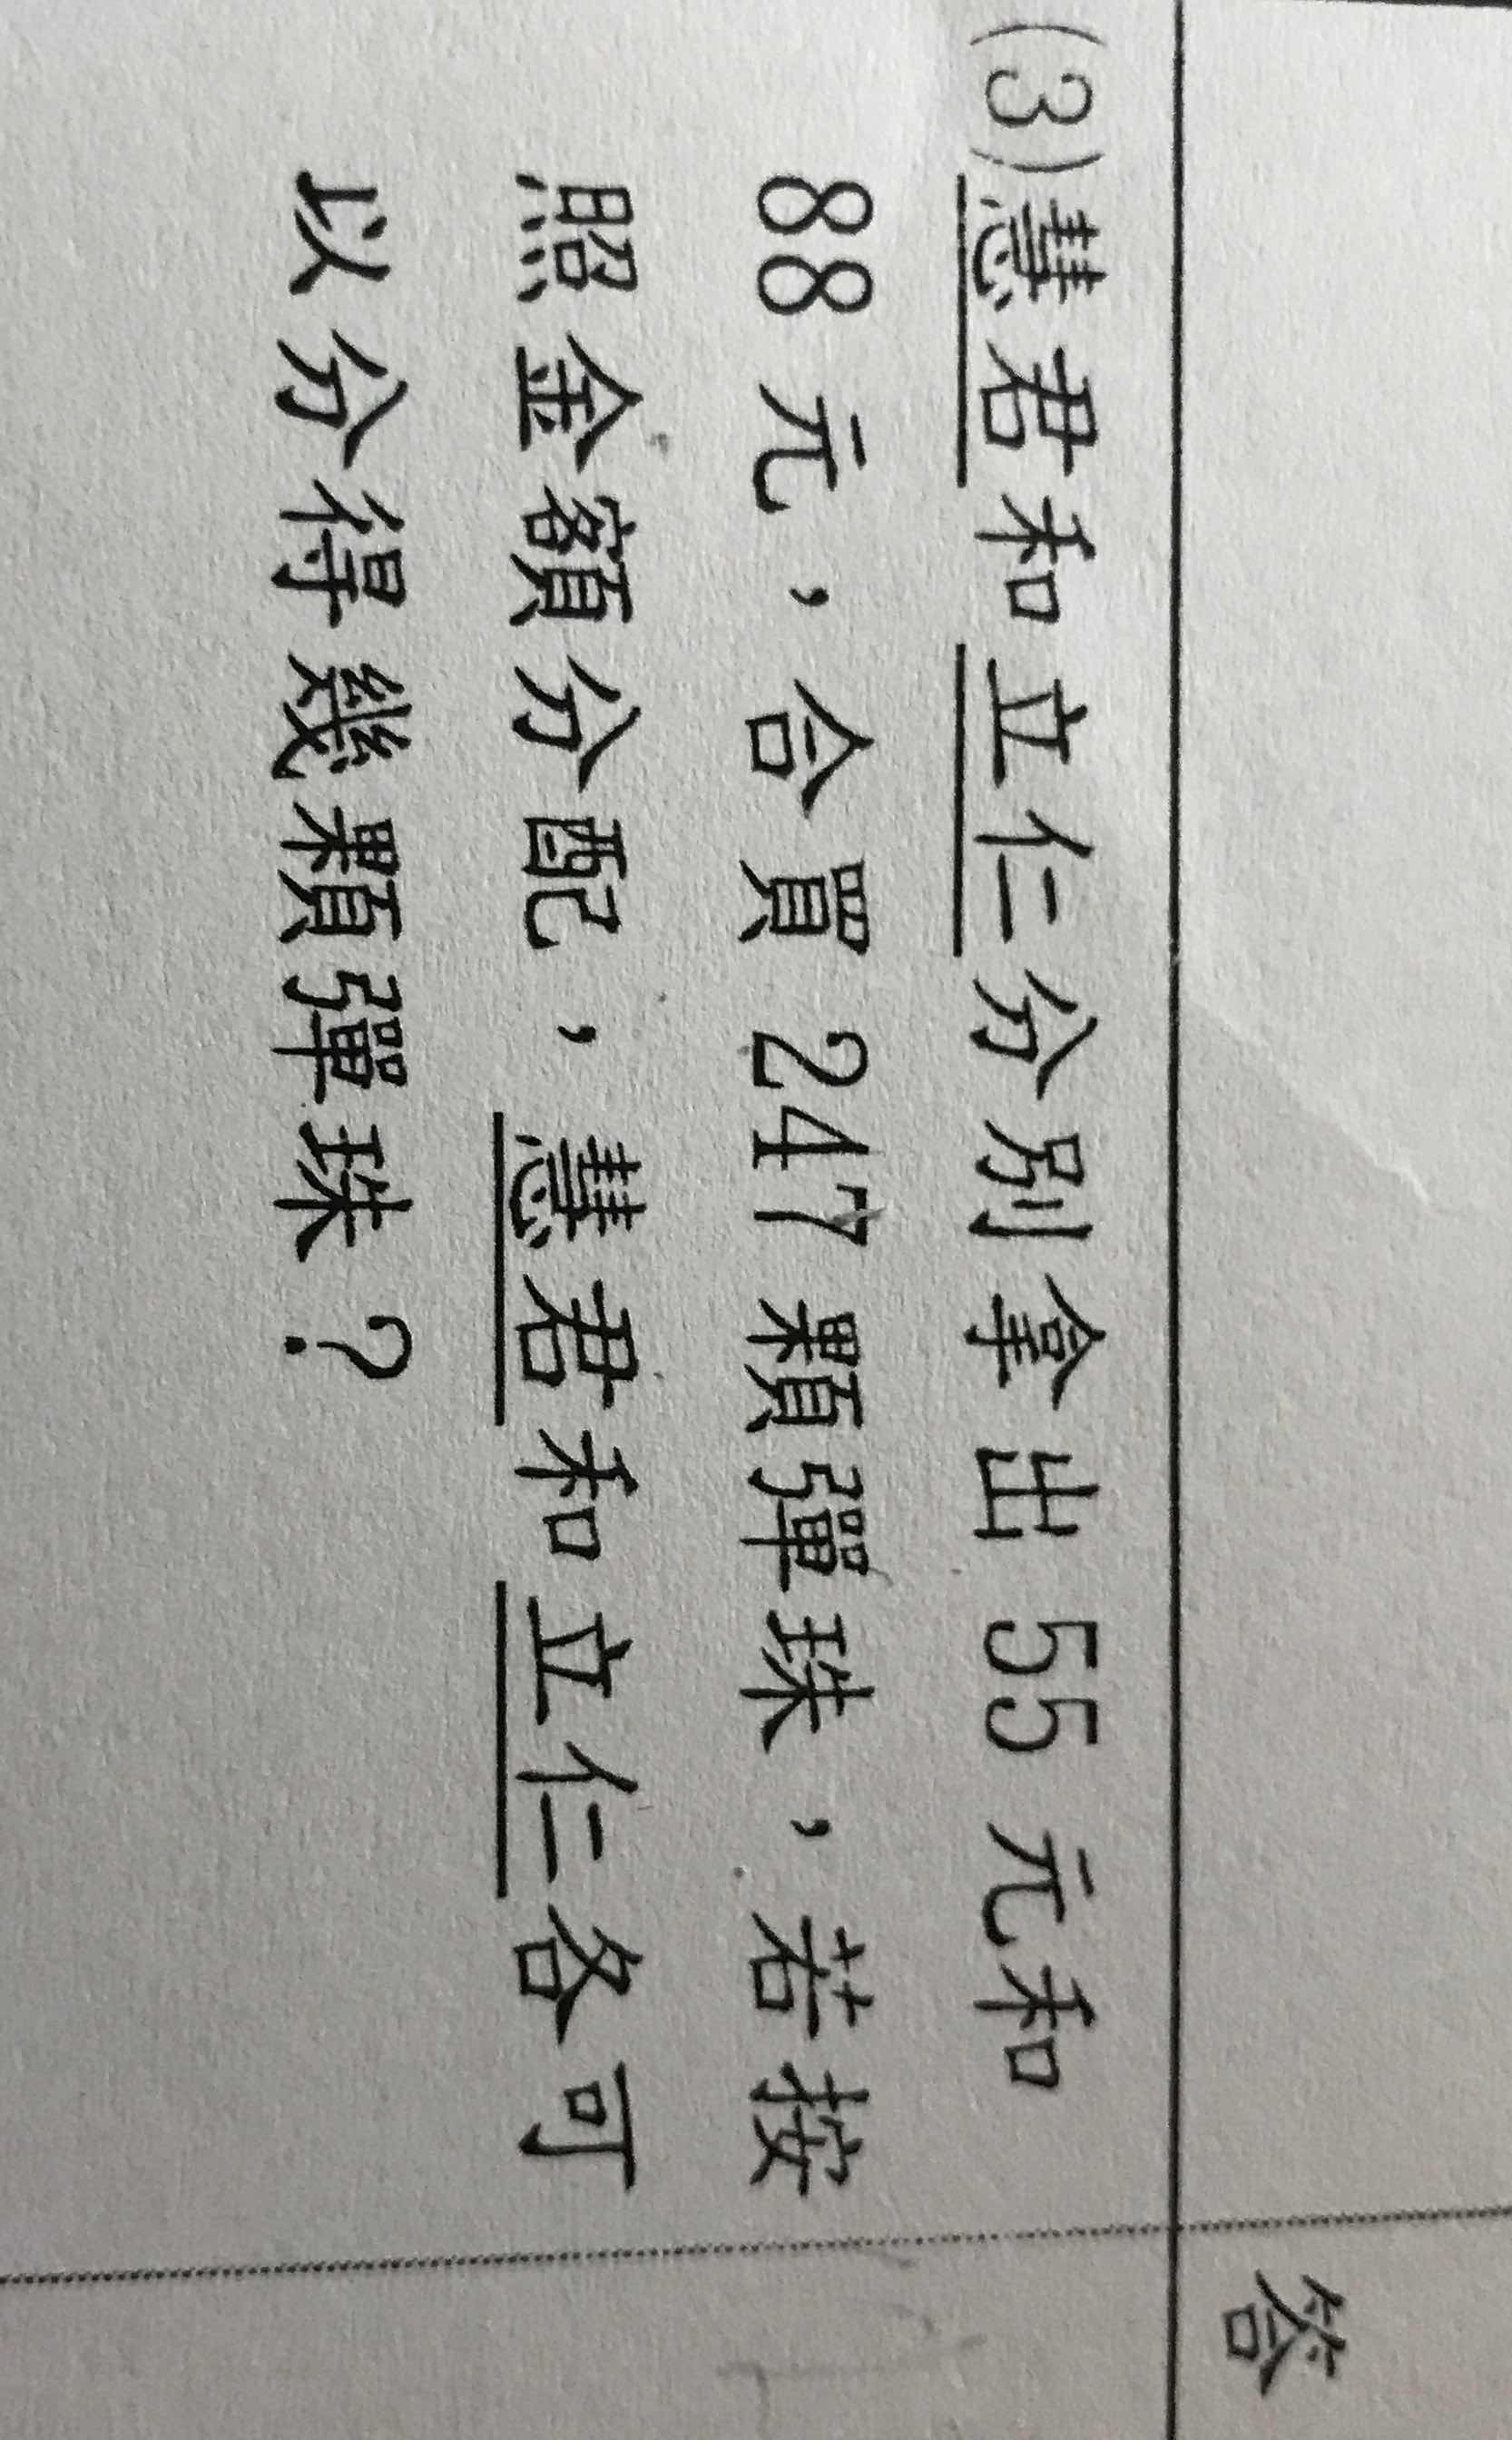 答
(3)慧君和立仁分別拿出 55 元和
88 元，合買 247 顆彈珠，若按
照金額分配，慧君和立仁各可
以分得幾顆彈珠？